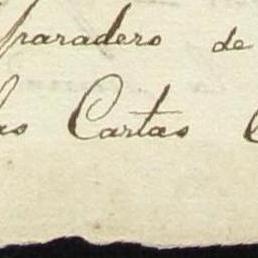 paradero de
las Cartas